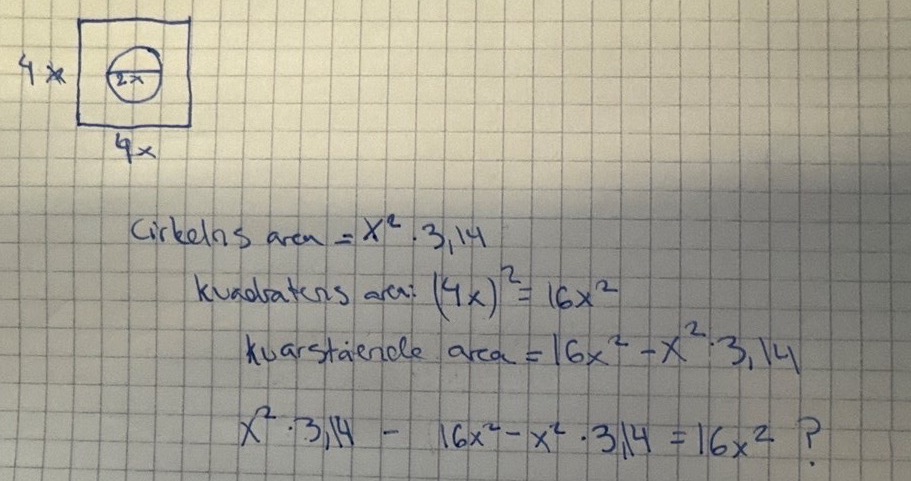 4x
2x
4x
Cirkelns area = x² · 3,14
kvadratens area: (4x)² = 16x²
kvarstående area = 16x² - x² · 3,14
x² · 3,14 - 16x² - x² · 3,14 = 16x² ?